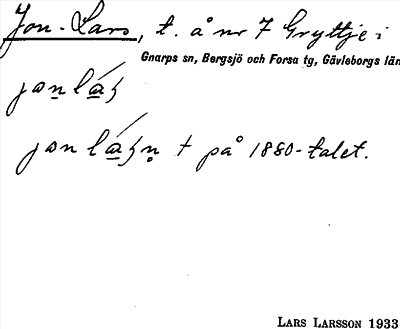 Jon-Lars, t. å nr 7 Gryttje i
Gnarps sn, Bergsjö och Forsa tg, Gävleborgs län
† på 1880-talet.
LARS LARSSON 1933